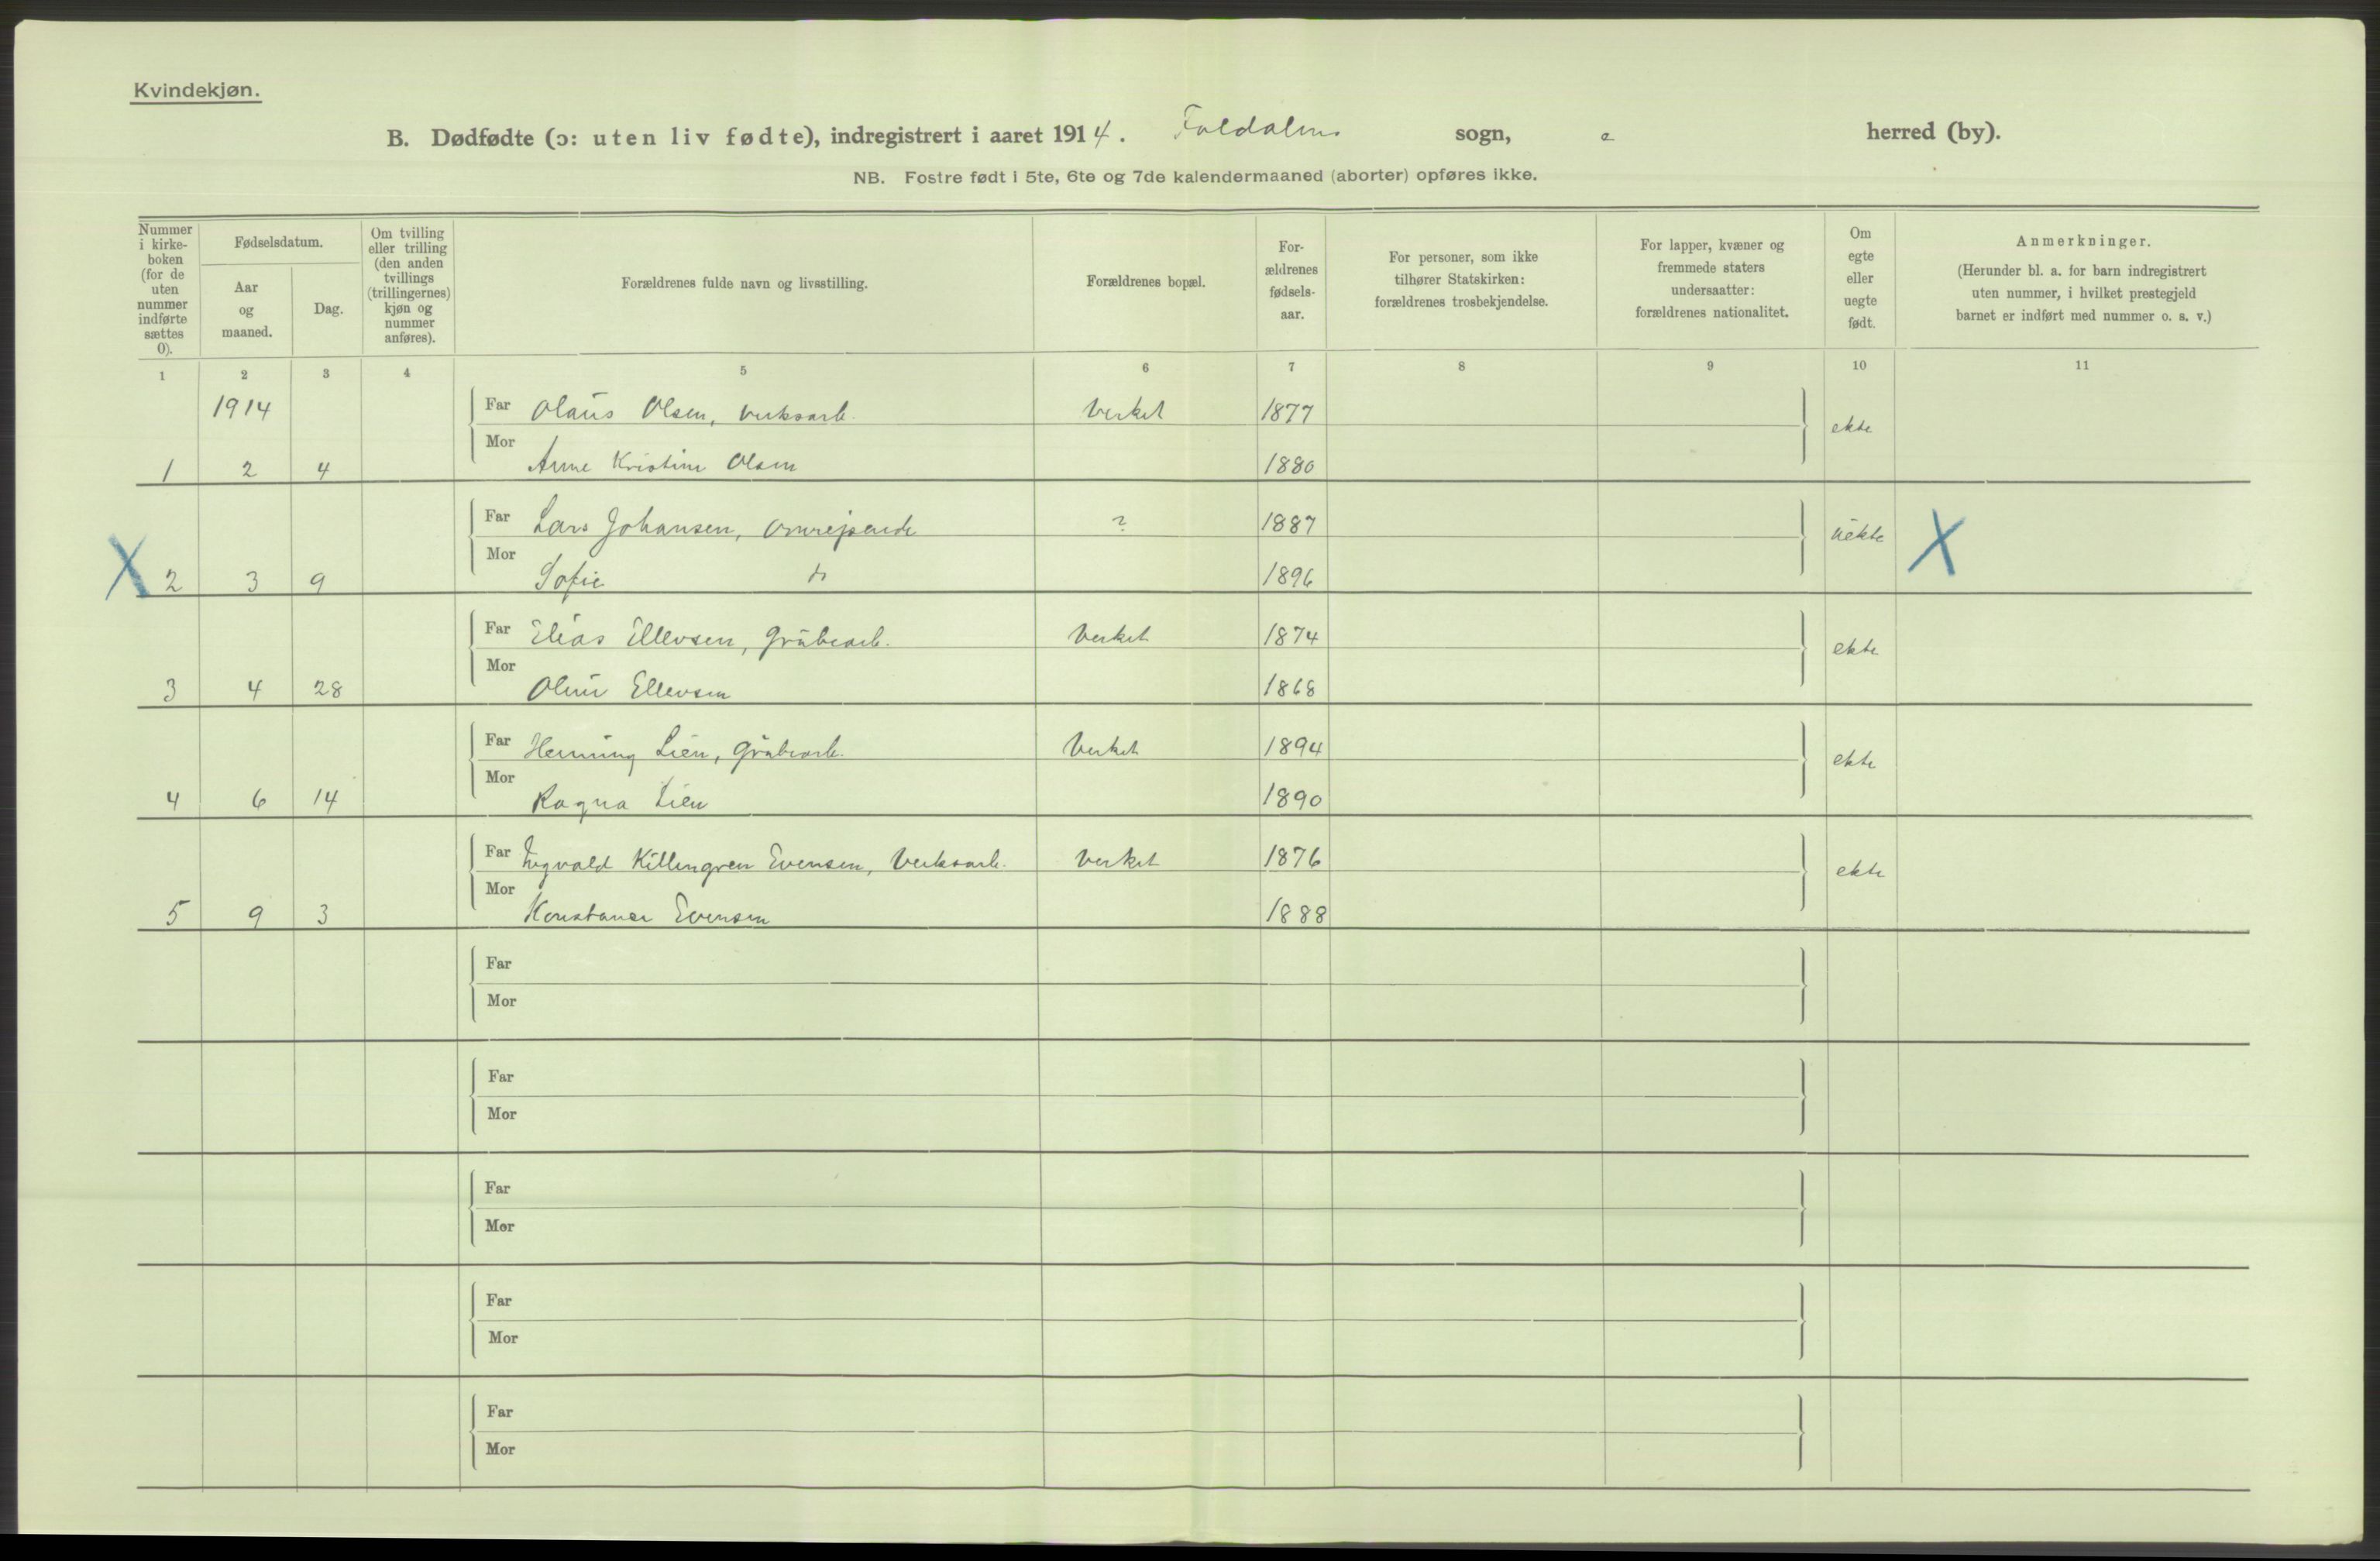 Kvindekjøn.
B. Dødfødte (ɔ: uten liv fødte), indregistrert i aaret 1914. Foldalens sogn, herred (by).
NB. Fostre født i 5te, 6te og 7de kalendermaaned (aborter) opføres ikke.
Nummer i kirke-boken (for de uten nummer indførte sættes 0).
Fødselsdatum.
Aar og maaned.
Dag.
Om tvilling eller trilling (den anden tvillings (trillingernes) kjøn og nummer anføres).
Forældrenes fulde navn og livsstilling.
Forældrenes bopæl.
For-ældrenes fødsels-aar.
For personer, som ikke tilhører Statskirken: forældrenes trosbekjendelse.
For lapper, kvæner og fremmede staters undersaatter: forældrenes nationalitet.
Om egte eller uegte født.
Anmerkninger.
(Herunder bl. a. for barn indregistrert uten nummer, i hvilket prestegjeld barnet er indført med nummer o. s. v.)
1 2 3 4 5 6 7 8 9 10 11
1914 Far Olaus Olsen, verksarb. Verket 1877 ekte
1 2 4 Mor Anne Kristine Olsen 1880
Far Lars Johansen, omreisende ? 1887 uekte X
X 2 3 9 Mor Sofie 1896
Far Elias Ellevsen, Grubearb. Verket 1874 ekte
3 4 28 Mor Oline Ellevsen 1868
Far Henning Lien, Grubearb. Verket 1894 ekte
4 6 14 Mor Ragna Lien 1890
Far Ingvald Killingren Evensen, Verksarb. Verket 1876 ekte
5 9 3 Mor Konstanse Evensen 1888
Far
Mor
Far
Mor
Far
Mor
Far
Mor
Far
Mor